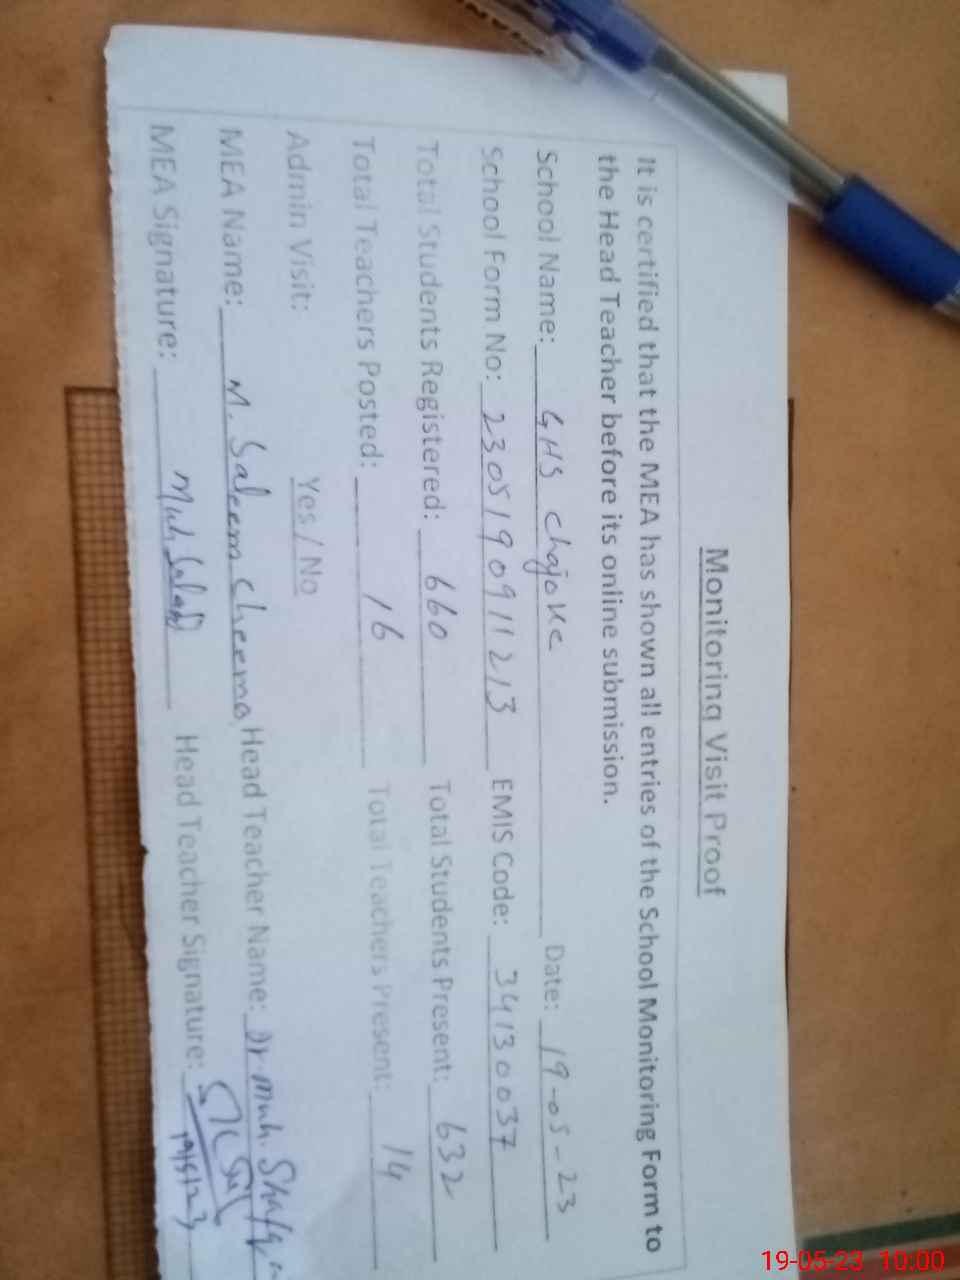 Monitoring Visit Proof
It is certified that the MEA has shown all entries of the School Monitoring Form to
the Head Teacher before its online submission.
School Name: GHS Chajoke Date: 19-05-23
School Form No: 2305190911213 EMIS Code: 34130037
Total Students Registered: 660 Total Students Present: 632
Total Teachers Posted: 16 Total Teachers Present: 14
Admin Visit: Yes / No
MEA Name: M. Saleem Cheema Head Teacher Name: Dr. Muh.
MEA Signature: Head Teacher Signature:
19/5/23
19-05-23 10:00